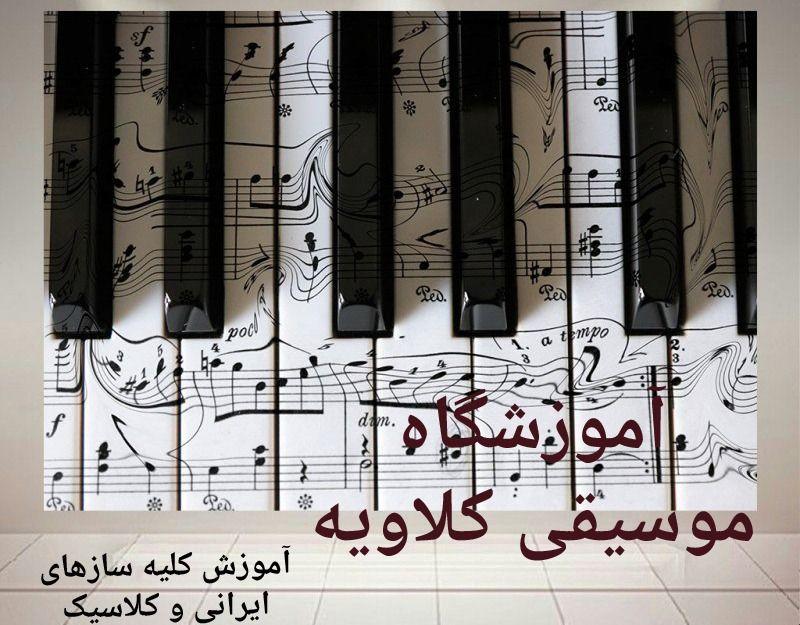 sf
Ped.
Ped.
Ped.
Ped.
Ped.
poco
1. a tempo
2.
f
dim.
Ped.
Ped.
آموزشگاه
موسیقی کلاویه
آموزش کلیه سازهای
ایرانی و کلاسیک